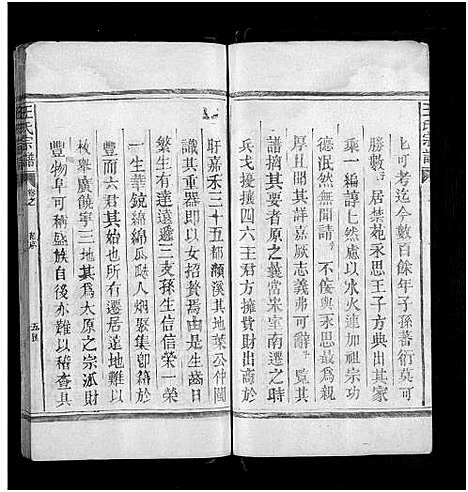 王氏宗譜
匕可考迄今數百餘年子孫蕃衍莫可
勝數居禁苑永思王子方典出其家
乘一編諄匕然處以水火連加祖宗功
德泯然無聞請 不佞與永思最為親
厚且聞其詳嘉厥志義弗可辭
譜摘其要者原之義常宋室南遷之時
兵戈擾攘四六王君方擁貲財出商於
盱嘉禾三十五都瀕溪其地葉公仲圖
識其重器即以女招贅焉由是生齒日
繁生有達遠遜三支孫生信信榮一榮
一生華鏡綿綿瓜瓞人烟聚集卽籍於
豐而六君其始也所有遷居遠地難以
枚舉廣饒寧三地其為太原之宗派財
豐物阜可稱盛族自後亦難以稽查具
王氏宗譜
卷之